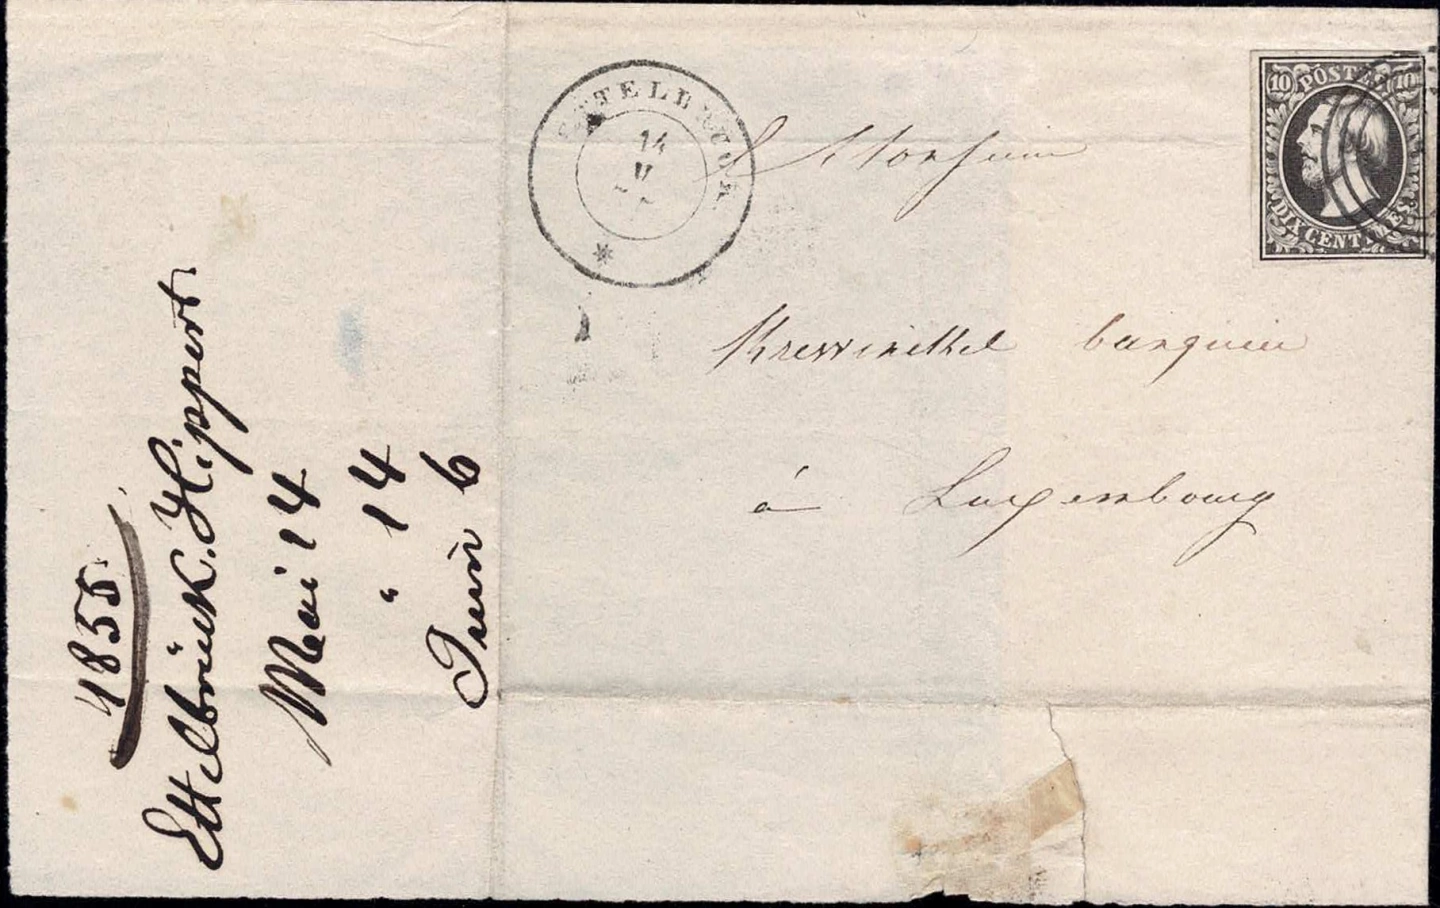 1855
Ettelbrück. Hippert
Mai 14
" 14
Juni 6
ETTELBRUCK
14
10 POSTES 10
DIX CENTIMES
Monsieur
banquier
à Luxembourg